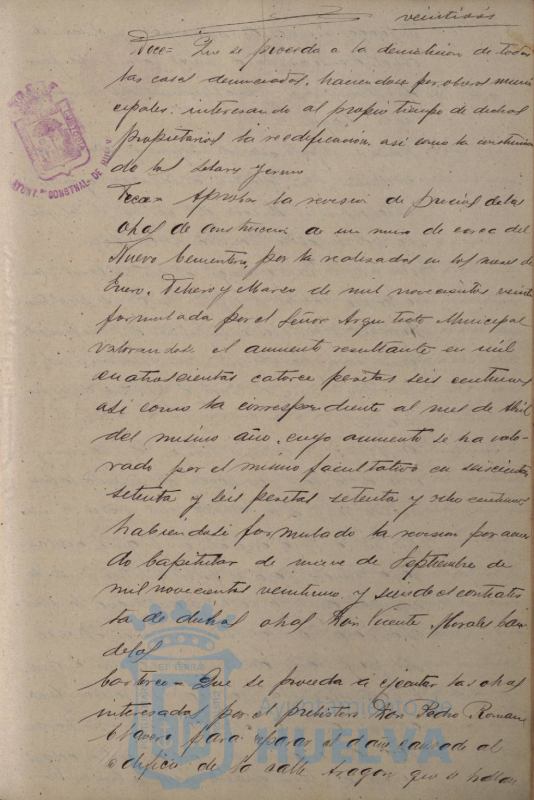 veintidós
Doce= Que se proceda a la demolición de todas
las casas denunciadas, haciendose por obras muni
cipales, interesando al propio tiempo de dichos
propietarios la reedificación, así como la
de los solares yermos
Trece= Aprobar la revisión de precios de las
obras de construccion de un muro de cerca del
Nuevo Cementerio, por las realizadas en los meses de
Enero, Febrero y Marzo de mil novecientos veinte
formulada por el Señor Arquitecto Municipal
valorandose el aumento resultante en mil
cuatrocientas catorce pesetas seis centimos
así como la correspondiente al mes de Abril
del mismo año, cuyo aumento se ha valo-
rado por el mismo facultativo en seiscientas
setenta y seis pesetas setenta y ocho centimos
habiéndose formulado la revision por acuer
do Capitular de nueve de Septiembre de
mil novecientos veintiuno y siendo el contratis
ta de dichas obras Don Vicente Morales
Catorce= Que se proceda a ejecutar las obras
interesadas por el Don Pedro Roman
para reparar el daño causado al
edificio de la calle Aragon que se hallan
AYUNT.º CONSTNAL. DE HUELVA
Ayuntamiento de
HUELVA